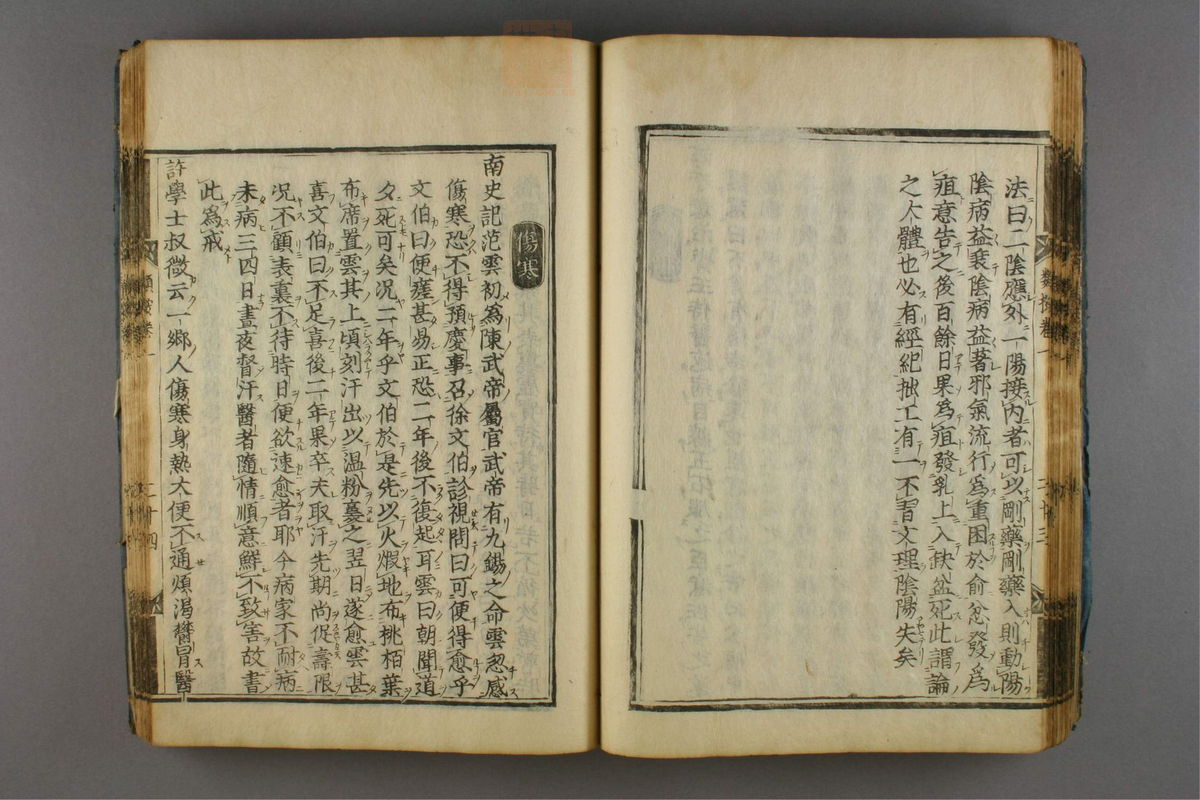 法曰二陰應外一陽接内者可以剛藥剛藥入則動陽
陰病益衰陰病益著邪氣流行爲重困於俞忿發爲
疽意告之後百餘日果爲疽發乳上入缺盆死此謂論
之大體也必有經紀拙工有一不習文理陰陽失矣
傷寒
南史記范雲初爲陳武帝屬官武帝有九錫之命雲忽感
傷寒恐不得預慶事召徐文伯診視問曰可便得愈乎
文伯曰便瘥甚易正恐二年後不復起耳雲曰朝聞道
夕死可矣况二年乎文伯於是先以火煅地布桃栢葉
布席置雲其上頃刻汗出以温粉裛之翌日遂愈雲甚
喜文伯曰不足喜後二年果卒夫取汗先期尚促壽限
况不顧表裏不待時日便欲速愈者耶今病家不耐病
未病三四日晝夜督汗醫者隨情順意鮮不致害故書
此爲戒
許學士叔微云一鄉人傷寒身熱大便不通煩渴鬱冒醫